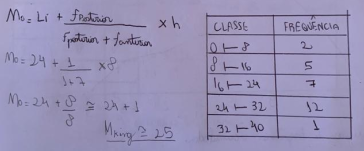 Mo = Li + fposterior / fposterior + fanterior x h
Mo = 24 + 1 / 1+7 x 8
Mo = 24 + 8 / 8 ≅ 24 + 1
≅ 25
CLASSE FREQUÊNCIA
0 ⊢ 8 2
8 ⊢ 16 5
16 ⊢ 24 7
24 ⊢ 32 12
32 ⊢ 40 1